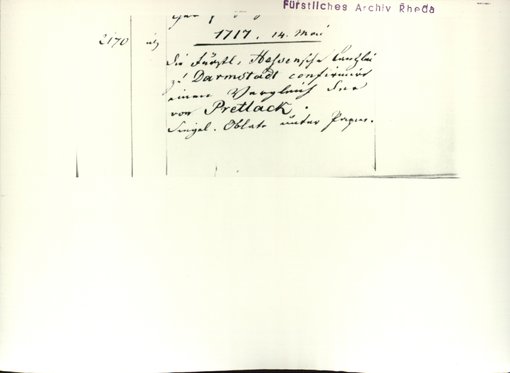 Fürstliches Archiv Rheda
1717, 14. Mai
2170
die Fürstl. Hessensche Canzlei
zu Darmstadt confirmirt
einen Vergleich der
von Prettlack.
Siegel. Oblate unter Papier.